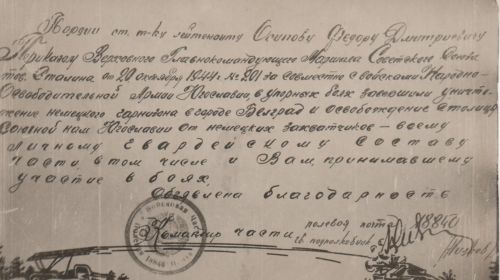 Гвардии ст. т-ку лейтенанту Осипову Федору Дмитриевичу
Приказом Верховного Главнокомандующего Маршала Советского Союза
тов. Сталина от 20 октября 1944 г. № 201 за совместно с войсками Народно-
Освободительной Армии Югославии, в упорных боях завершили уничто-
жение немецкого гарнизона в городе Белград и освобождение столицы
Союзной нам Югославии от немецких захватчиков – всему
личному гвардейскому составу
части, в том числе и Вам, принимавшему
участие в боях,
объявлена благодарность
Командир части полевая почта 18840
гв. подполковник